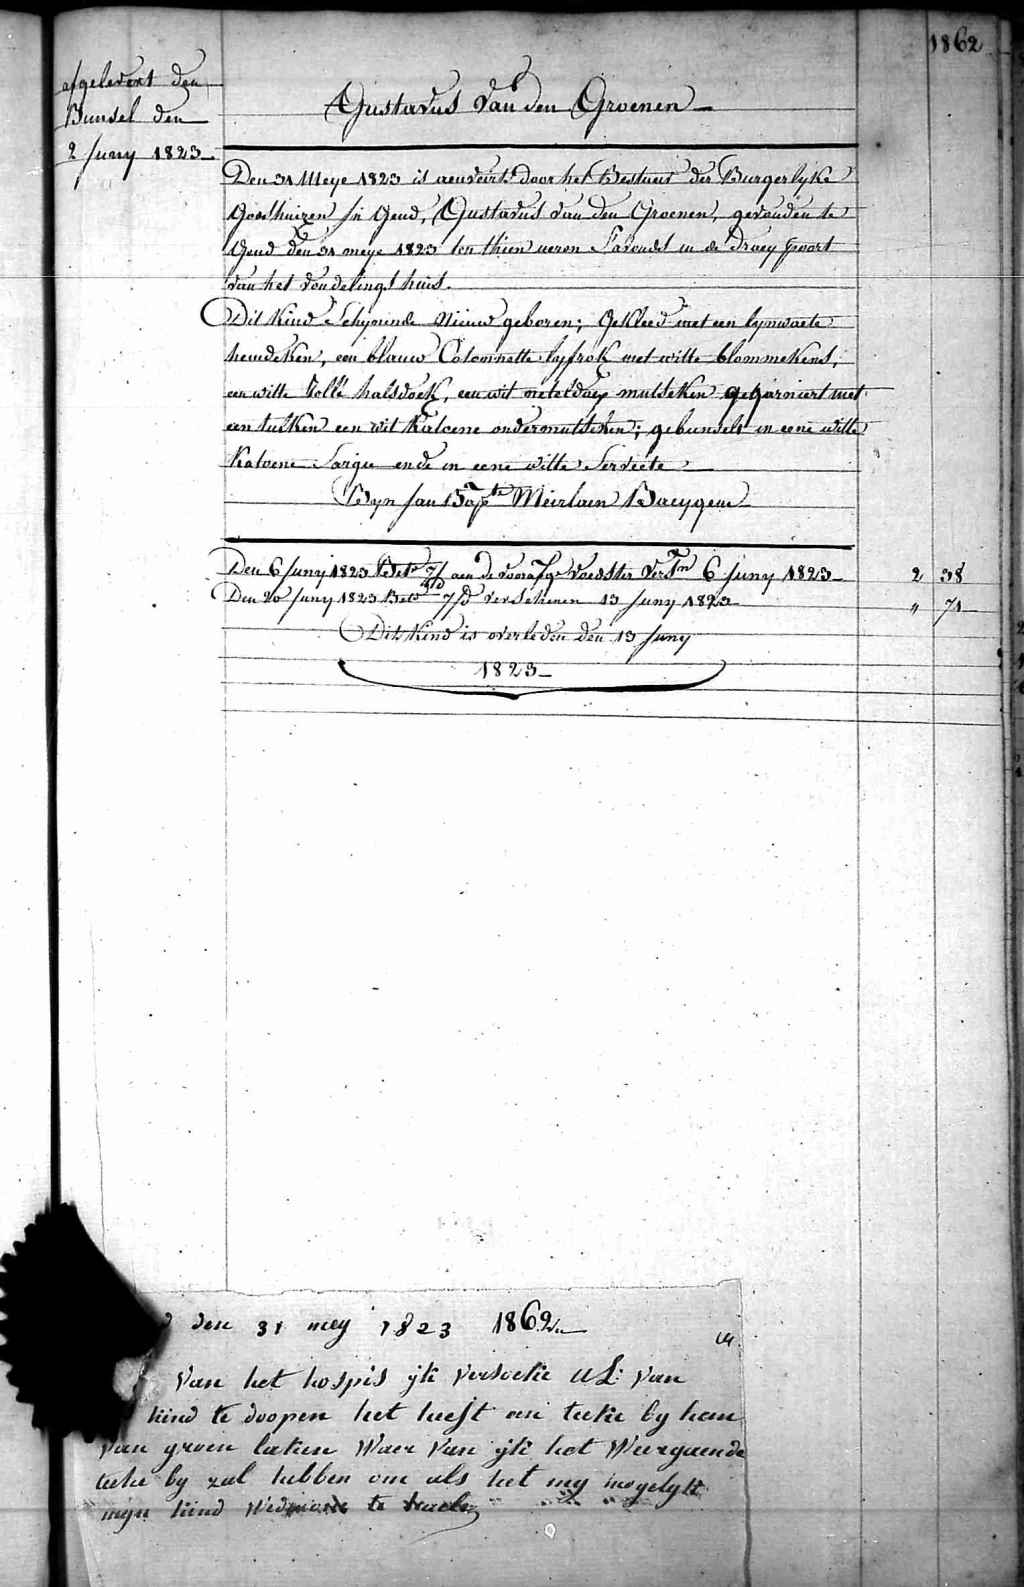 1862
afgelevert den
Bunsel den
2 Juny 1823
Gustavus Van den Groenen
Den 31 Meye 1823 is aenveirt door het Bestuer der Burgerlyke
Godshuizen in Gend, Gustavus van den Groenen, gevonden te
Gend den 31 meye 1823 ten thien ueren s'avonds in de draey poort
van het vondelings huis.
Dit Kind schynende nieuw geboren; gekleed met een lynwaete
hemdeken, een blauw Colonnette lyfrok met witte blommekens,
een witte Volle halsdoek, een wit neteldoex mutseken gegarniert met
een tulken een wit Katoene ondermutseken; gebunselt in eene witte
Katoene Sargie ende in eene witte Serviete
Byn Jan Bapte Meirlaen Baeygem
Den 6 Juny 1823 aen de voorafge voedster Vers 6 Juny 1823 2 38
Den 20 Juny 1823 Bete verschenen 13 Juny 1823 " 71
Dit Kind is overleden den 13 Juny
1823
den 31 mey 1823 1862
Van het hospis ijk versoeke UL: van
kind te doopen het heeft een teeke by hem
van groen laken Waer Van ijk het Weergaende
teeke by zal hebben om als het my mogelyk
mijn kind te